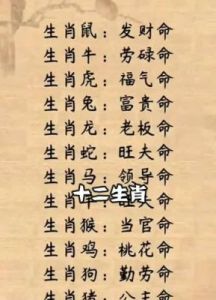 生肖鼠：发财命
生肖牛：劳碌命
生肖虎：福气命
生肖兔：富贵命
生肖龙：老板命
生肖蛇：旺夫命
生肖马：领导命
十二生肖
生肖猴：当官命
生肖鸡：桃花命
生肖狗：勤劳命
生肖猪：公主命